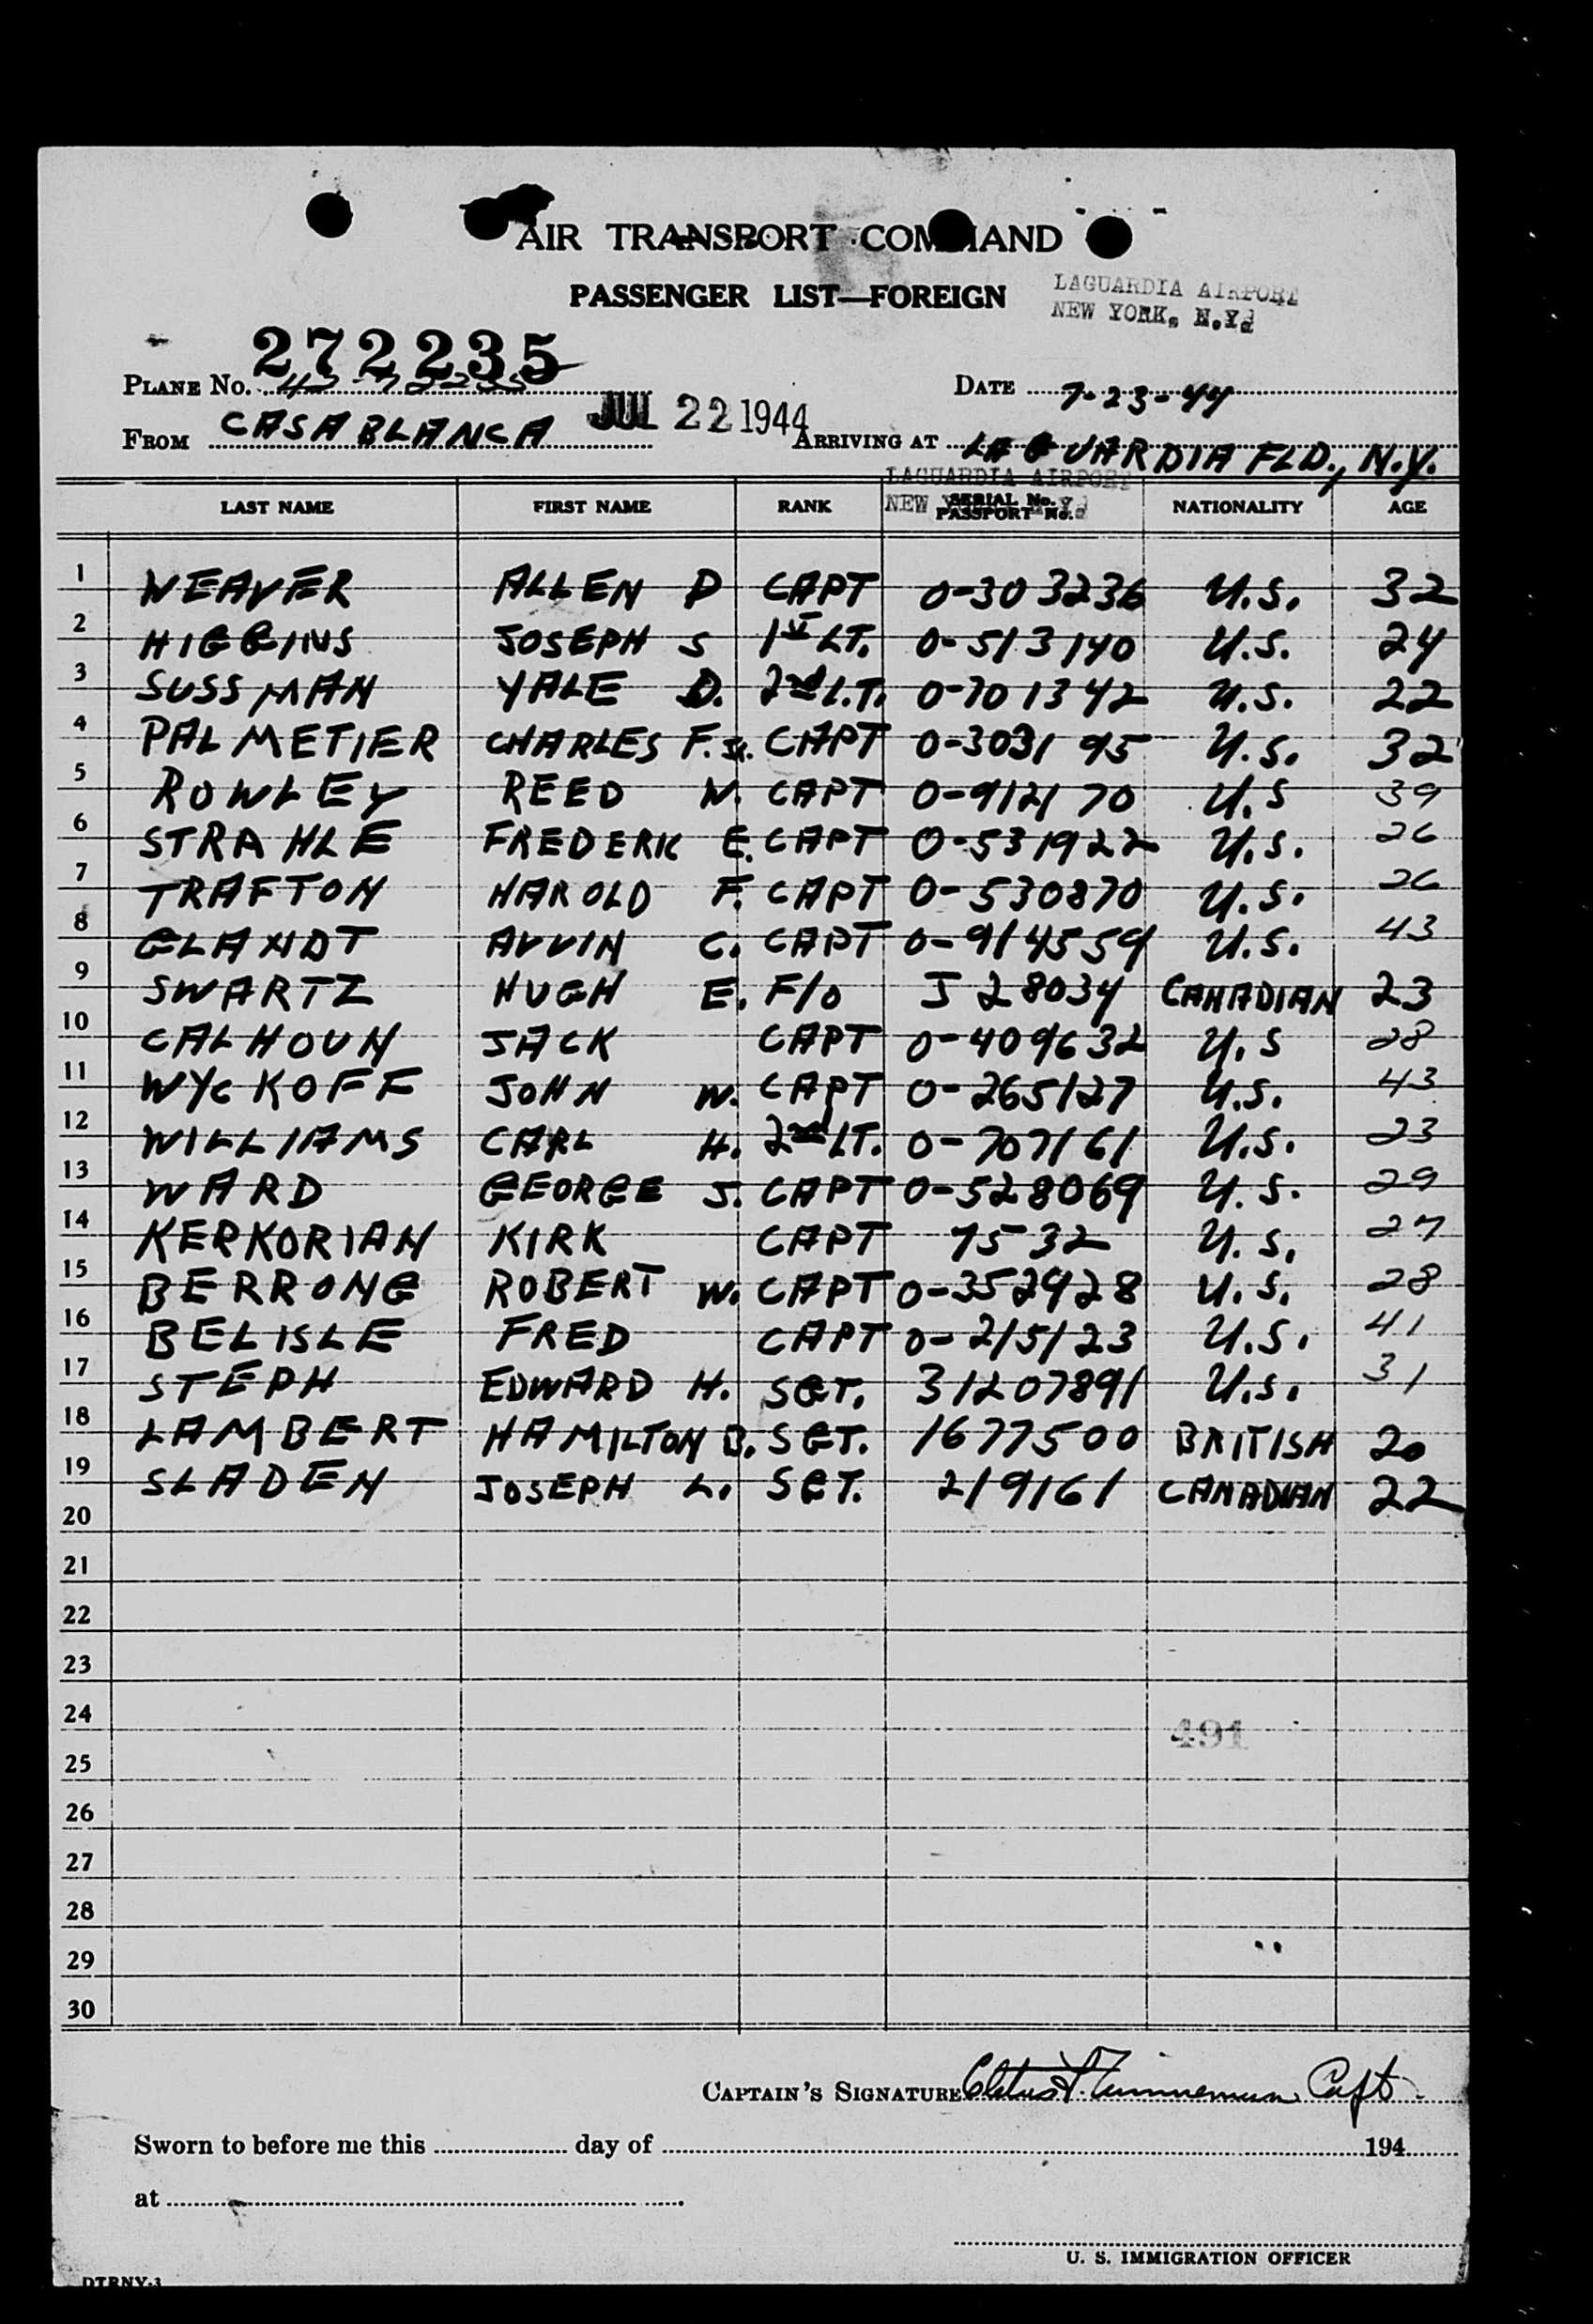 AIR TRANSPORT COMMAND
PASSENGER LIST—FOREIGN
LAGUARDIA AIRPORT
NEW YORK, N.Y.
272235
PLANE No. 42-72235
DATE 7-23-44
FROM CASABLANCA JUL 22 1944 ARRIVING AT LAGUARDIA FLD., N.Y.
LAGUARDIA AIRPORT
LAST NAME FIRST NAME RANK SERIAL No. PASSPORT No. NATIONALITY AGE
1 WEAVER ALLEN D CAPT 0-303236 U.S. 32
2 HIGGINS JOSEPH S 1ST LT. 0-513140 U.S. 24
3 SUSSMAN YALE D. 2nd L.T. 0-701342 U.S. 22
4 PALMETIER CHARLES F. Jr. CAPT 0-303195 U.S. 32
5 ROWLEY REED W. CAPT 0-912170 U.S 39
6 STRAHLE FREDERIK E. CAPT 0-531922 U.S. 26
7 TRAFTON HAROLD F. CAPT 0-530870 U.S. 26
8 GLANDT AVVIN C. CAPT 0-914559 U.S. 43
9 SWARTZ HUGH E. F/O J 28034 CANADIAN 23
10 CALHOUN JACK CAPT 0-409632 U.S 28
11 WYCKOFF JOHN W. CAPT 0-265127 U.S. 43
12 WILLIAMS CARL H. 2nd LT. 0-707161 U.S. 23
13 WARD GEORGE J. CAPT 0-528069 U.S. 29
14 KERKORIAN KIRK CAPT 7532 U.S. 27
15 BERRONG ROBERT W. CAPT 0-352928 U.S. 28
16 BELISLE FRED CAPT 0-215123 U.S. 41
17 STEPH EDWARD H. SGT. 31207891 U.S. 31
18 LAMBERT HAMILTON B. SGT. 1677500 BRITISH 20
19 SLADEN JOSEPH L. SGT. 219161 CANADIAN 22
20
21
22
23
24
491
25
26
27
28
29
30
CAPTAIN'S SIGNATURE Capt
Sworn to before me this day of 194
at
U. S. IMMIGRATION OFFICER
DTRNY-3